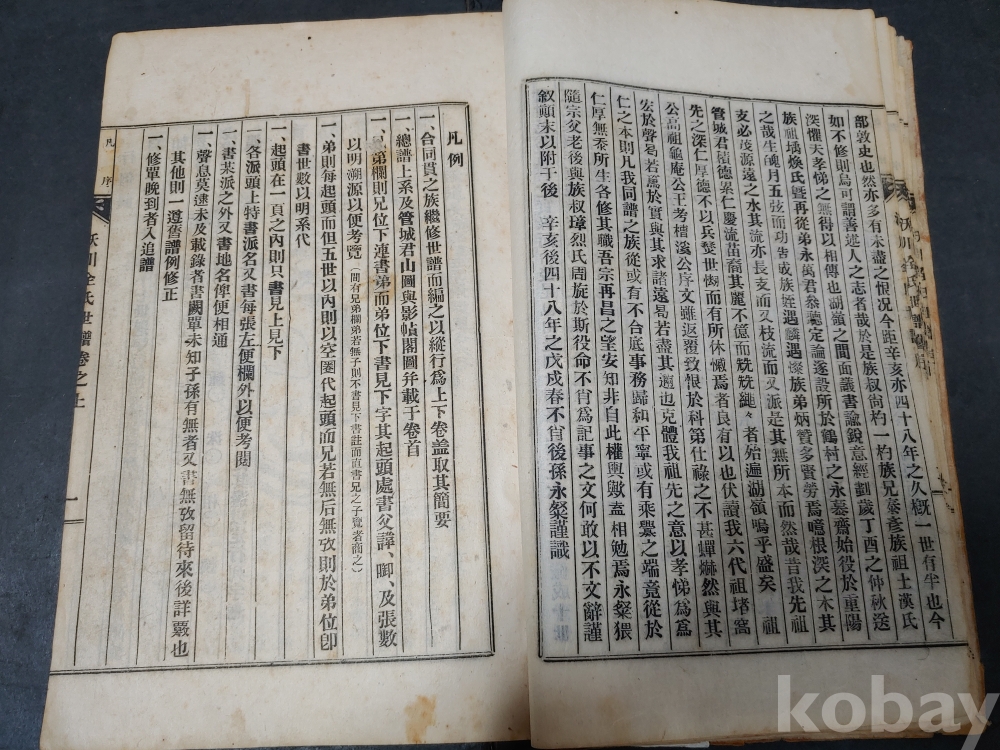 部敦史也然亦多有未盡之恨况今距辛亥亦四十八年之久槪一世有半也今
如不修則烏可謂善述人之志者哉於是族叔尙杓一杓族兄泰彥族祖士漢氏
深懼天孝悌之無得以相傳也湖嶺之間面議書諭銳意經劃歲丁酉之仲秋送
族祖瑀煥氏曁再從弟永萬君叅聽定論遂設所於鶴村之永慕齋始役於重陽
之哉生魄月五弦而功告或族姪遇麟遇深族弟炳贊多賢勞焉噫根深之木其
支必茂源遠之水其流亦長支而又枝流而又派是其無所本而然哉昔我先祖
管城君積德累仁慶流苗裔其麗不億而兟兟繩々者殆遍湖嶺嗚乎盛矣 祖
先之深仁厚德不以兵燹世悑而有所休懒焉者良有以也伏讀我六代祖堵窩
公高祖龜庵公王考檣溪公序文雖返覆致恨於科第仕祿之不甚蟬爀然與其
宏於聲曷若篤於實與其求諸遠曷若盡其邇迫克體我祖先之意以孝悌爲爲
仁之本則凡我同譜之族從或有不合底事務歸和平寧或有乘釁之端竟從於
仁厚無忝所生各修其職吾宗再昌之望安知非自此權輿歟蓋相勉焉永粲猥
隨宗父老後與族叔璋烈氏周旋於斯役命不肖爲記事之文何敢以不文辭謹
敘顚末以附于後 辛亥後四十八年之戊戌春不肖後孫永粲謹識
沃川全氏世譜卷之上
凡例
一、合同貫之族繼修世譜而編之以縱行爲上下卷盖取其簡要
一、總譜上系及管城君山圖與影幀閣圖并載于卷首
一、兄弟欄則兄位下連書弟而弟位下書見下字其起頭處書父諱、脚、及張數
以明溯源以便考覽(間有兄弟欄弟若無子則不書見下書註而直書兄之子覽者商之)
一、弟則每起頭而但五世以內則以空圈代起頭而兄若無后無攷則於弟位卽
書世數以明系代
一、起頭在一頁之內則只書見上見下
一、各派頭上特書派名又書每張左便欄外以便考閱
一、書某派之外又書地名俾便相通
一、聲息莫逮未及載錄者書闕單未知子孫有無者又書無攷留待來後詳覈也
其他則一遵舊譜例修正
一、修單晚到者入追譜
凡 序
沃川全氏世譜卷之上
一
kobay